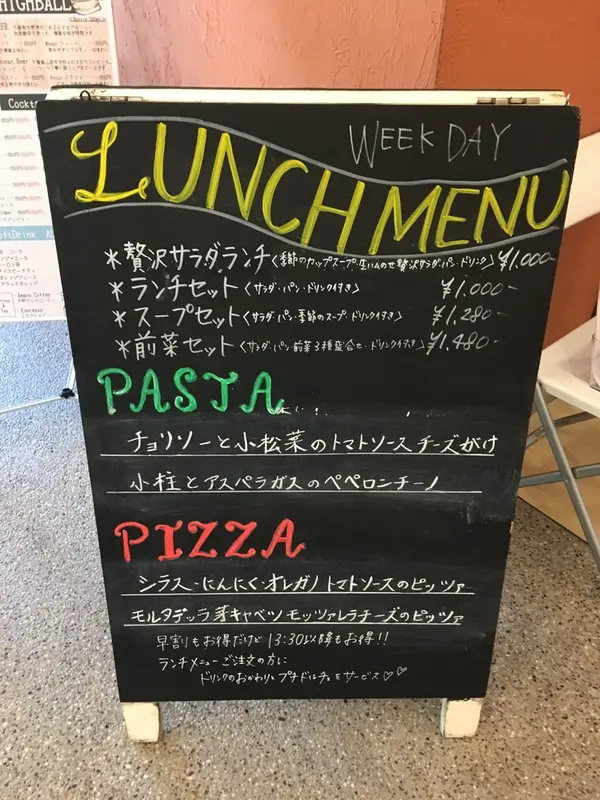 HIGHBALL
Cockt
SoftDrink
WEEK DAY
LUNCH MENU
*贅沢サラダランチ〈季節のカップスープ・生ハムのせ贅沢サラダ・パン・ドリンク〉¥1,000-
*ランチセット〈サラダ・パン・ドリンク付き〉 ¥1,000-
*スープセット〈サラダ・パン・季節のスープ・ドリンク付き〉 ¥1,280-
*前菜セット〈サラダ・パン・前菜3種盛合せ・ドリンク付き〉¥1,480-
PASTA
チョリソーと小松菜のトマトソース チーズがけ
小柱とアスパラガスのペペロンチーノ
PIZZA
シラス・にんにく・オレガノ トマトソースのピッツァ
モルタデッラ 芽キャベツ モッツァレラチーズのピッツァ
早割りもお得だけど 13:30以降もお得!!
ランチメニューご注文の方に
ドリンクのおかわりとプチドルチェをサービス♡♡